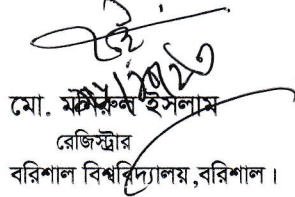 মো. মনিরুল ইসলাম
রেজিস্ট্রার
বরিশাল বিশ্ববিদ্যালয়,বরিশাল।